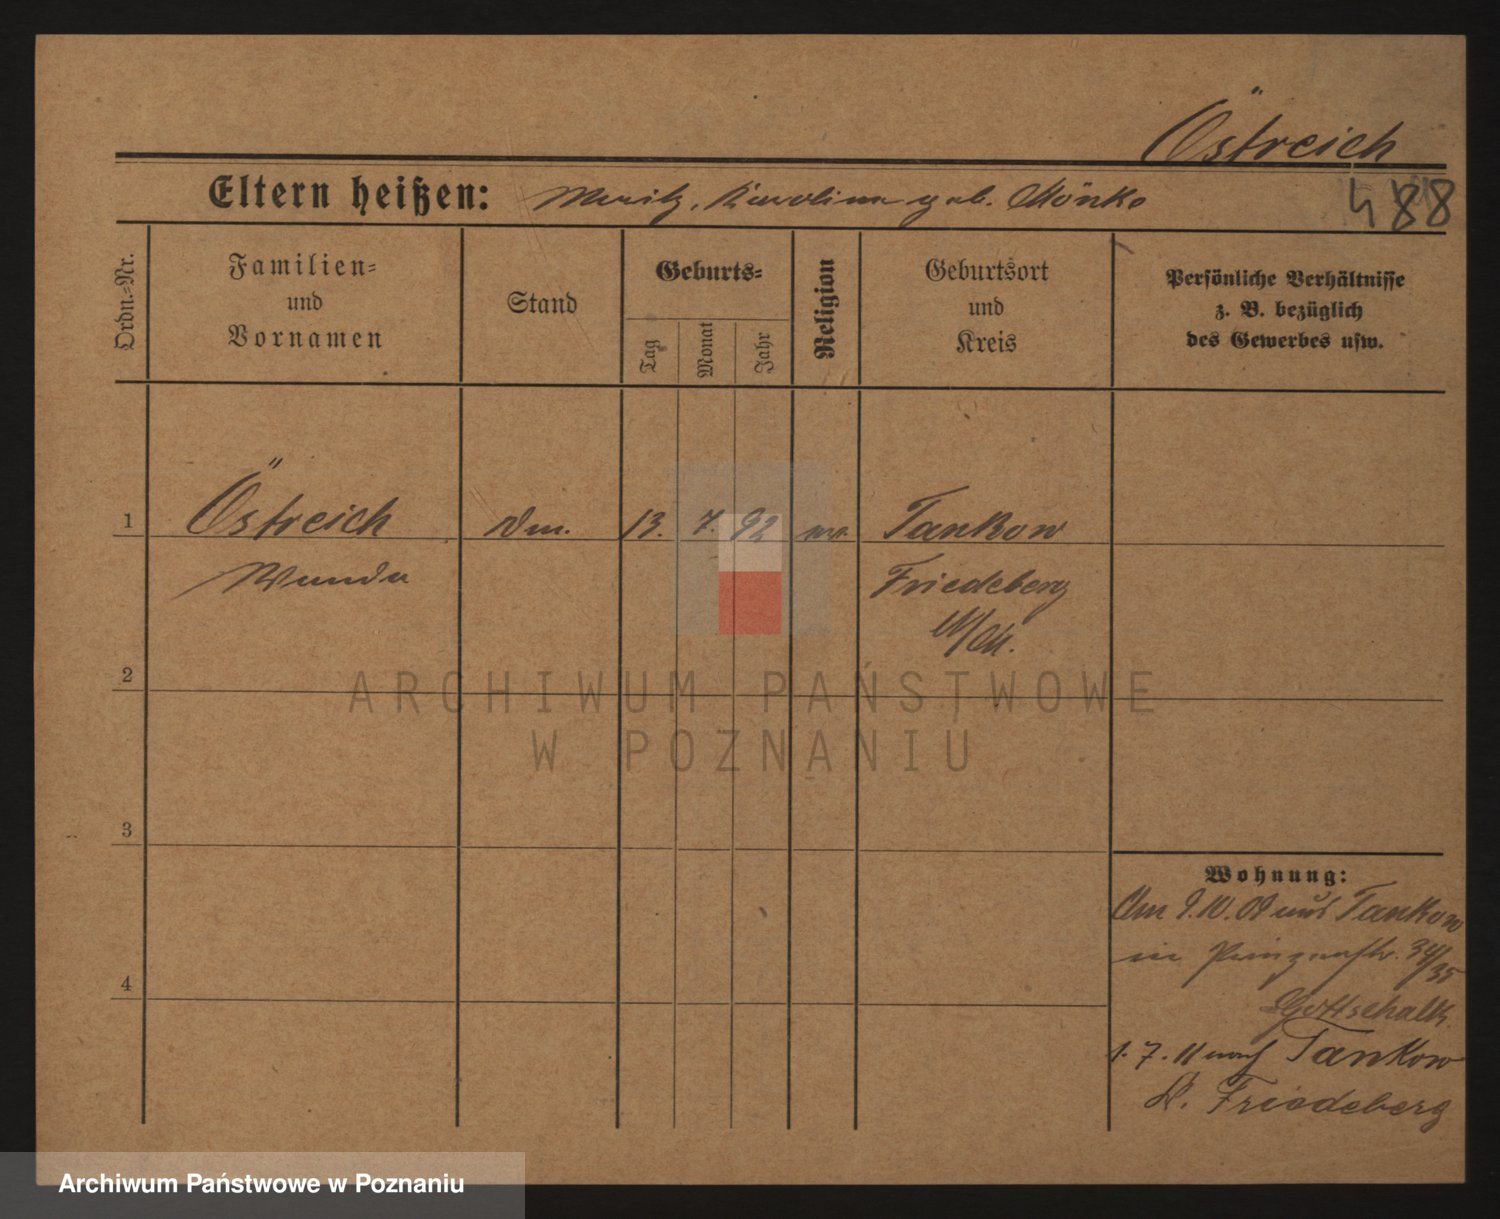 Östreich
488
Eltern heißen: Moritz, Karoline geb. Mönke
Ordn.-Nr.
Familien-
und
Vornamen
Stand
Geburts-
Tag
Monat
Jahr
Religion
Geburtsort
und
Kreis
Persönliche Verhältnisse
z. B. bezüglich
des Gewerbes usw.
1 Östreich 13. 7. 92 Tankow
Wanda Friedeberg
N/M.
2
ARCHIWUM PAŃSTWOWE
W POZNANIU
3
Wohnung:
Am 9.10.09 aus Tankow
in Prinzenstr. 34/35
4
Gottschalk.
1.7.11 nach Tankow
K. Friedeberg
Archiwum Państwowe w Poznaniu